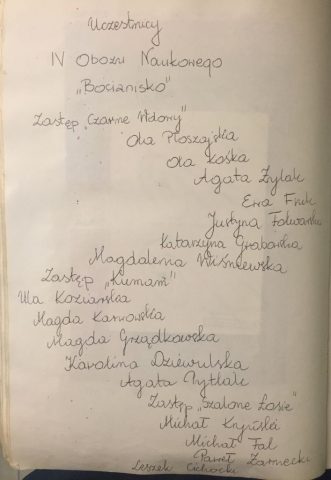 Uczestnicy
IV Obozu Naukowego
„Bocianisko”
Zastęp „Czarne Wdowy”
Ola Płoszajska
Ola Kośka
Agata Żylak
Ewa
Justyna
Katarzyna Grabarska
Magdalena Wiśniewska
Zastęp „Kumam”
Ula Koziarska
Magda Karwowska
Magda Grządkowska
Karolina Dziewulska
Agata Pytlak
Zastęp „Szalone Łosie”
Michał
Michał Fal
Paweł Żarnecki
Leszek Cichocki